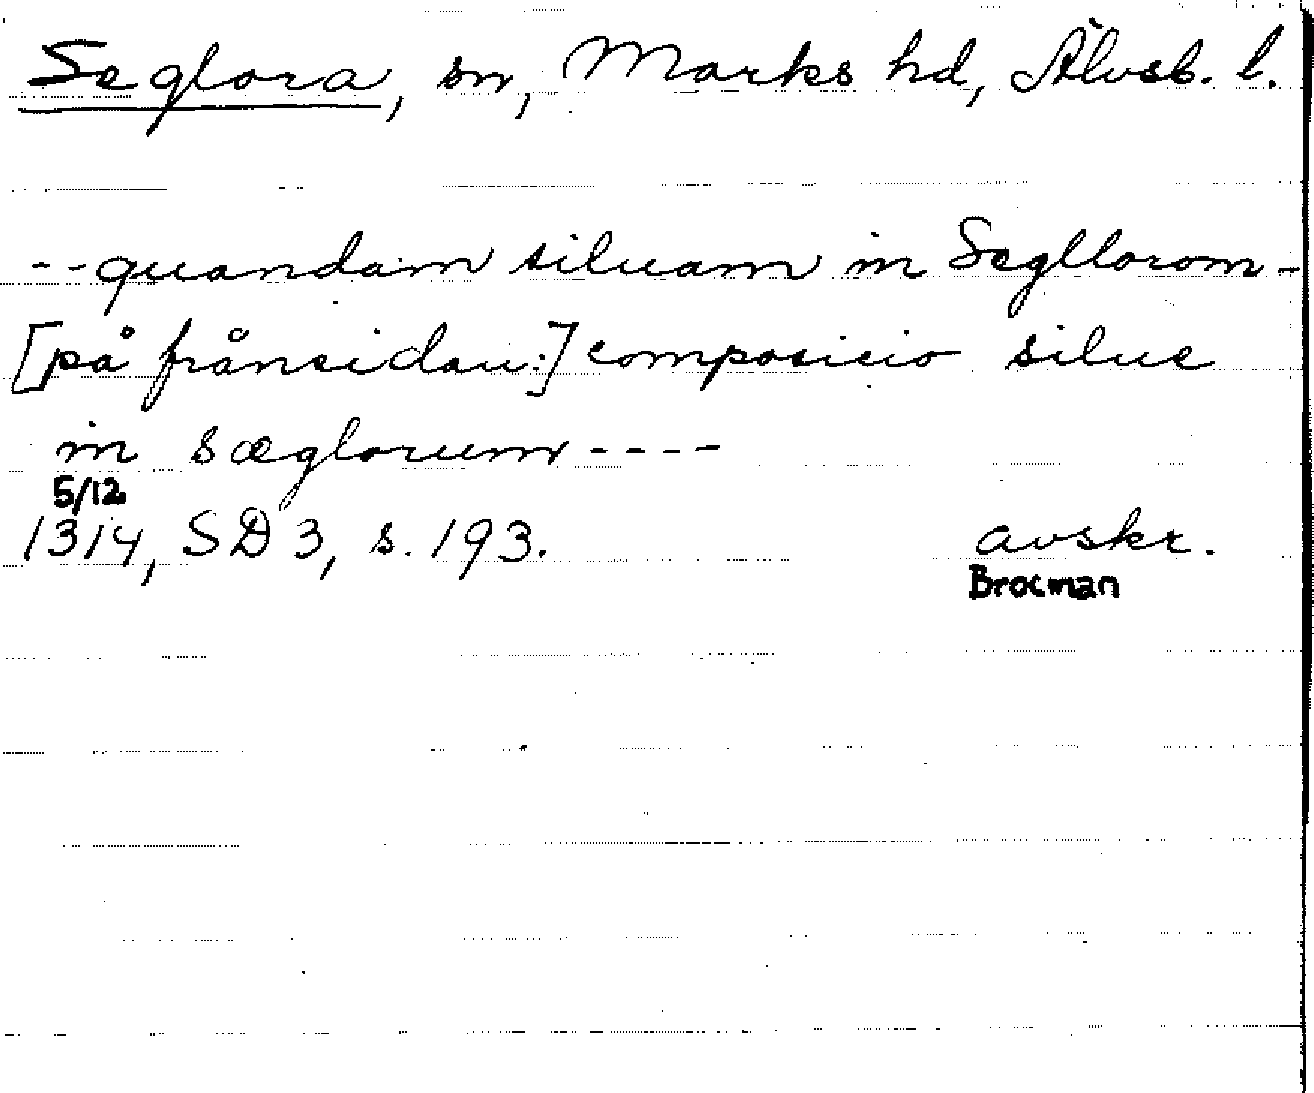 Seglora, sn, Marks hd, Älvsb. l.
--quandam siluam in Segllorom-
[på frånsidan:] composicio silue
in sæglorum----
5/12
1314, SD 3, s. 193. avskr.
Brocman